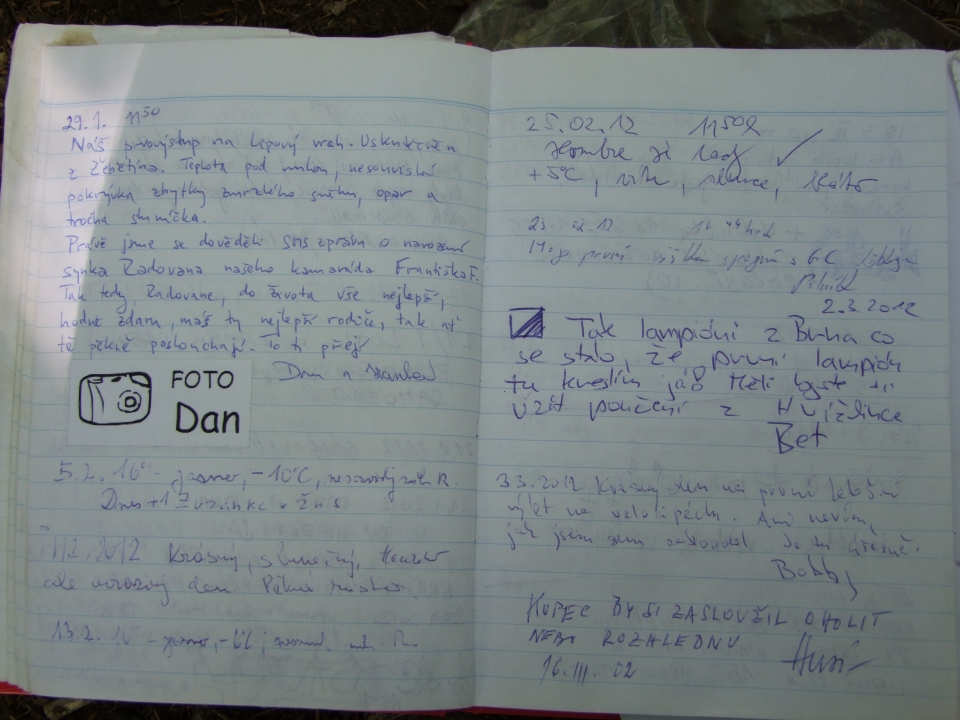 29.1. 11⁵⁰
Náš prvovýstup na Lipový vrch. Uskutečněn
z Žebětína. Teplota pod nulou, nesouvislá
pokrývka zbytky zmrzlého sněhu, opar a
trocha sluníčka.
Právě jsme se dověděli SMS zprávu o narození
synka Radovana našeho kamaráda Františka F.
Tak tedy, Radovane, do života vše nejlepší,
hodně zdaru, máš ty nejlepší rodiče, tak ať
tě pěkně poslouchají. To ti přejí
Dan a
FOTO
Dan
5.2. 16 - jasno, -10°C,
Dnes +1
12.2.2012 Krásný, slunečný,
ale mrazivý den. Pěkné místo.
13.2. 16 - jasno,
25.02.12 1150
+5°C, slunce, bláto
25 02.12
Moje první s GC
2.3.2012
Tak lampióni z Brna co
se stalo, že první lampión
tu kreslím já? Měli byste si
vzít poučení z Hvězdlice
Bet
3.3.2012 Krásný den na první letošní
výlet na velocipédu. Ani nevím,
jak jsem sem
Bobby
KOPEC BY SI ZASLOUŽIL OHOLIT
NEBO ROZHLEDNU
16.III. 02